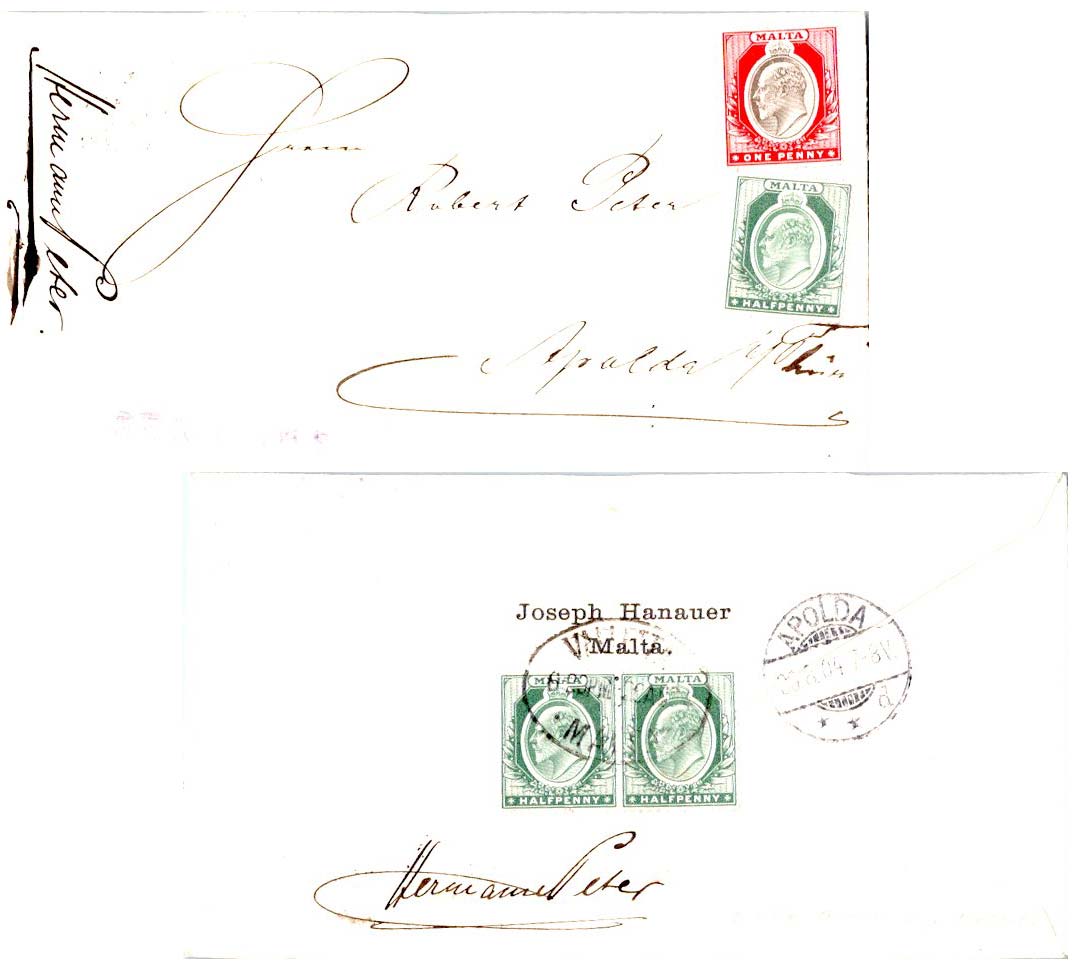 Hermann Peter.
MALTA
ONE PENNY
Herrn
Robert Peter
MALTA
HALFPENNY
Apolda i/Thür
Joseph Hanauer
Malta.
VALLETTA
MALTA
APOLDA
7-8V
d
MALTA
MALTA
HALFPENNY
HALFPENNY
Hermann Peter